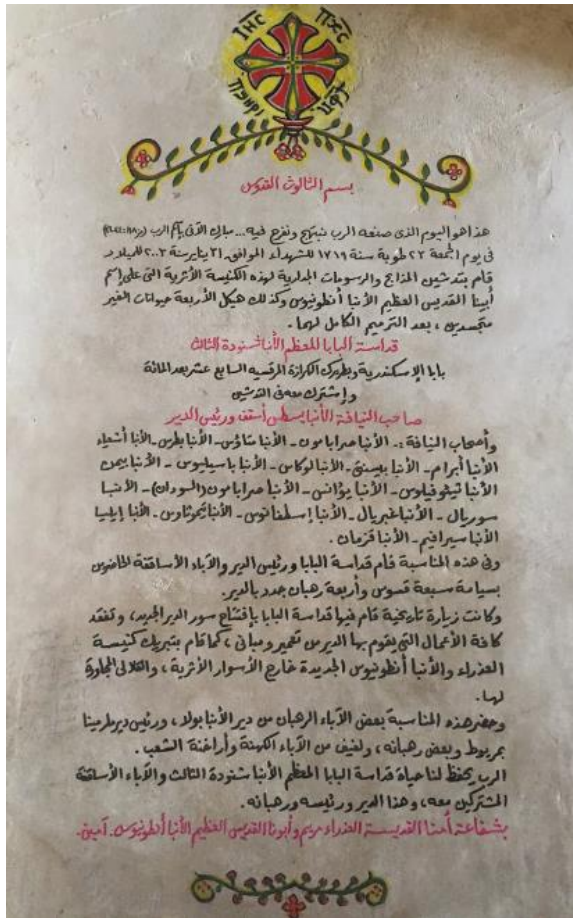 ΙΗC ΠΧC
ΠϢΗΡΙ ⲘⲪϮ
بسم الثالوث القدوس
هذا هو اليوم الذى صنعه الرب نبتهج ونفرح فيه... مبارك الآتى بآسم الرب
فى يوم الجمعة ٢٣ طوبة سنة ١٧١٩ للشهداء الموافق ٣١ يناير سنة ٢٠٠٣ للميلاد
قام بتدشين المذابح والرسومات الجدارية لهذه الكنيسة الأثرية التى على إسم
أبينا القديس العظيم الأنبا أنطونيوس وكذلك هيكل الأربعة حيوانات الغير
متجسدين ، بعد الترميم الكامل لهما .
قداسة البابا المعظم الأنبا شنودة الثالث
بابا الإسكندرية وبطريرك الكرازة المرقسيه السابع عشر بعد المائة
وإشترك معه فى التدشين
صاحب النيافة الأنبا يسطس أسقف ورئيس الدير
وأصحاب النيافة :- الأنبا صرابامون - الأنبا متاؤس - الأنبا بطرس - الأنبا أشعياء
الأنبا أبرام - الأنبا بيسنتى - الأنبا لوكاس - الأنبا باسيليوس - الأنبا بيمن
الأنبا ثيئوفيلوس - الأنبا يؤانس - الأنبا صرابامون (السودان) - الأنبا
سوريال - الأنبا غبريال - الأنبا إسطفانوس - الأنبا تيموثاوس - الأنبا إيليا
الأنبا سيرافيم - الأنبا قزمان .
وفى هذه المناسبة قام قداسة البابا ورئيس الدير والآباء الأساقفة الحاضرين
بسيامة سبعة قسوس وأربعة رهبان جدد بالدير .
وكانت زيارة تاريخية قام فيها قداسة البابا بإفتتاح سور الدير الجديد ، وتفقد
كافة الأعمال التى يقوم بها الدير من تعمير ومبانى ، كما قام بتبريك كنيسة
العذراء والأنبا أنطونيوس الجديدة خارج الأسوار الأثرية ، والقلالى المجاورة
لها .
وحضر هذه المناسبة بعض الآباء الرهبان من دير الأنبا بولا ، ورئيس دير مارمينا
بمريوط وبعض رهبانه ، ولفيف من الآباء الكهنة وأراخنة الشعب .
الرب يحفظ لنا حياة قداسة البابا المعظم الأنبا شنودة الثالث والآباء الأساقفة
المشتركين معه ، وهذا الدير ورئيسه ورهبانه .
بشفاعة أمنا القديسة العذراء مريم وأبونا القديس العظيم الأنبا أنطونيوس . آمين .